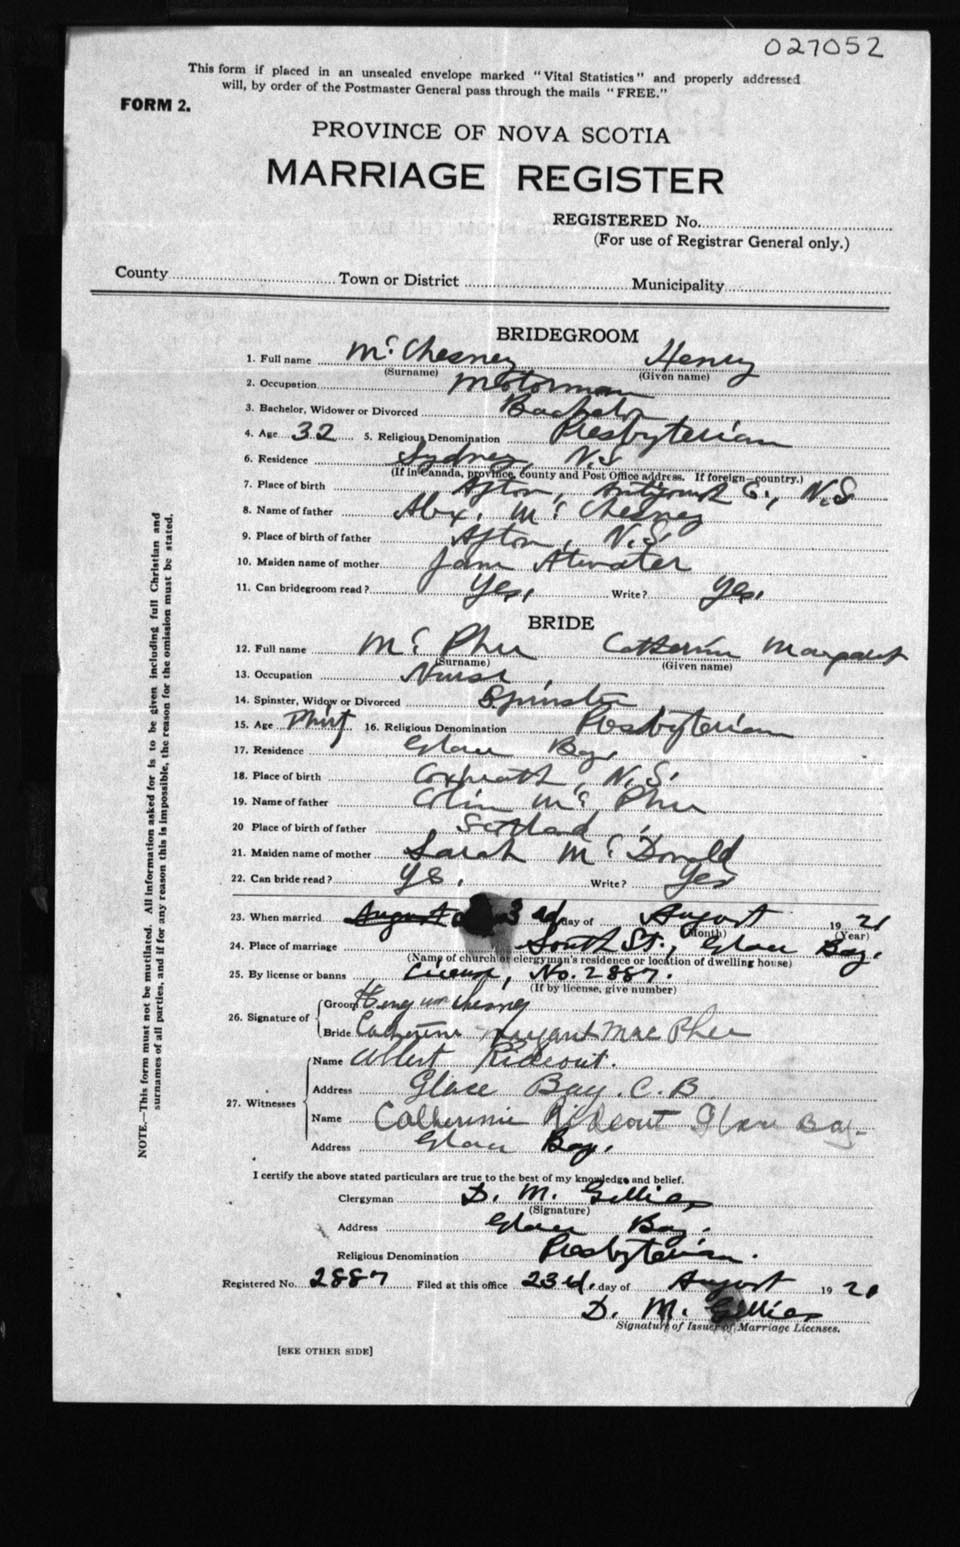 027052
This form if placed in an unsealed envelope marked "Vital Statistics" and properly addressed
will, by order of the Postmaster General pass through the mails "FREE."
FORM 2.
PROVINCE OF NOVA SCOTIA
MARRIAGE REGISTER
REGISTERED No.
(For use of Registrar General only.)
County Town or District Municipality
BRIDEGROOM
1. Full name McChesney Henry
(Surname) (Given name)
2. Occupation Motorman
3. Bachelor, Widower or Divorced Bachelor
4. Age 32 5. Religious Denomination Presbyterian
6. Residence Sydney, N.S.
(If in Canada, province, county and Post Office address. If foreign—country.)
7. Place of birth Afton, Antigonish Co., N.S
8. Name of father Alex. McChesney
9. Place of birth of father Afton, N.S.
10. Maiden name of mother Jane Atwater
11. Can bridegroom read? Yes, Write? Yes,
BRIDE
12. Full name McPhee Catherine Margaret
(Surname) (Given name)
13. Occupation Nurse
14. Spinster, Widow or Divorced Spinster
15. Age Thirty 16. Religious Denomination Presbyterian
17. Residence Glace Bay
18. Place of birth Coxheath, N.S.
19. Name of father Colin McPhee
20 Place of birth of father Scotland
21. Maiden name of mother Sarah McDonald
22. Can bride read? Yes. Write? Yes
23. When married August 3rd day of August 1921
(Month) (Year)
24. Place of marriage South St., Glace Bay.
(Name of church or clergyman's residence or location of dwelling house)
25. By license or banns License, No. 2887.
(If by license, give number)
26. Signature of
Groom Henry McChesney
Bride Catherine Margaret MacPhee
27. Witnesses
Name Albert Rideout.
Address Glace Bay. C.B
Name Catherine Rideout Glace Bay.
Address Glace Bay.
I certify the above stated particulars are true to the best of my knowledge and belief.
Clergyman D. M. Gillies
(Signature)
Address Glace Bay.
Religious Denomination Presbyterian.
Registered No. 2887 Filed at this office 23rd. day of August 1921
D. M. Gillies
Signature of Issuer of Marriage Licenses.
[SEE OTHER SIDE]
NOTE.—This form must not be mutilated. All information asked for is to be given including full Christian and
surnames of all parties, and if for any reason this is impossible, the reason for the omission must be stated.